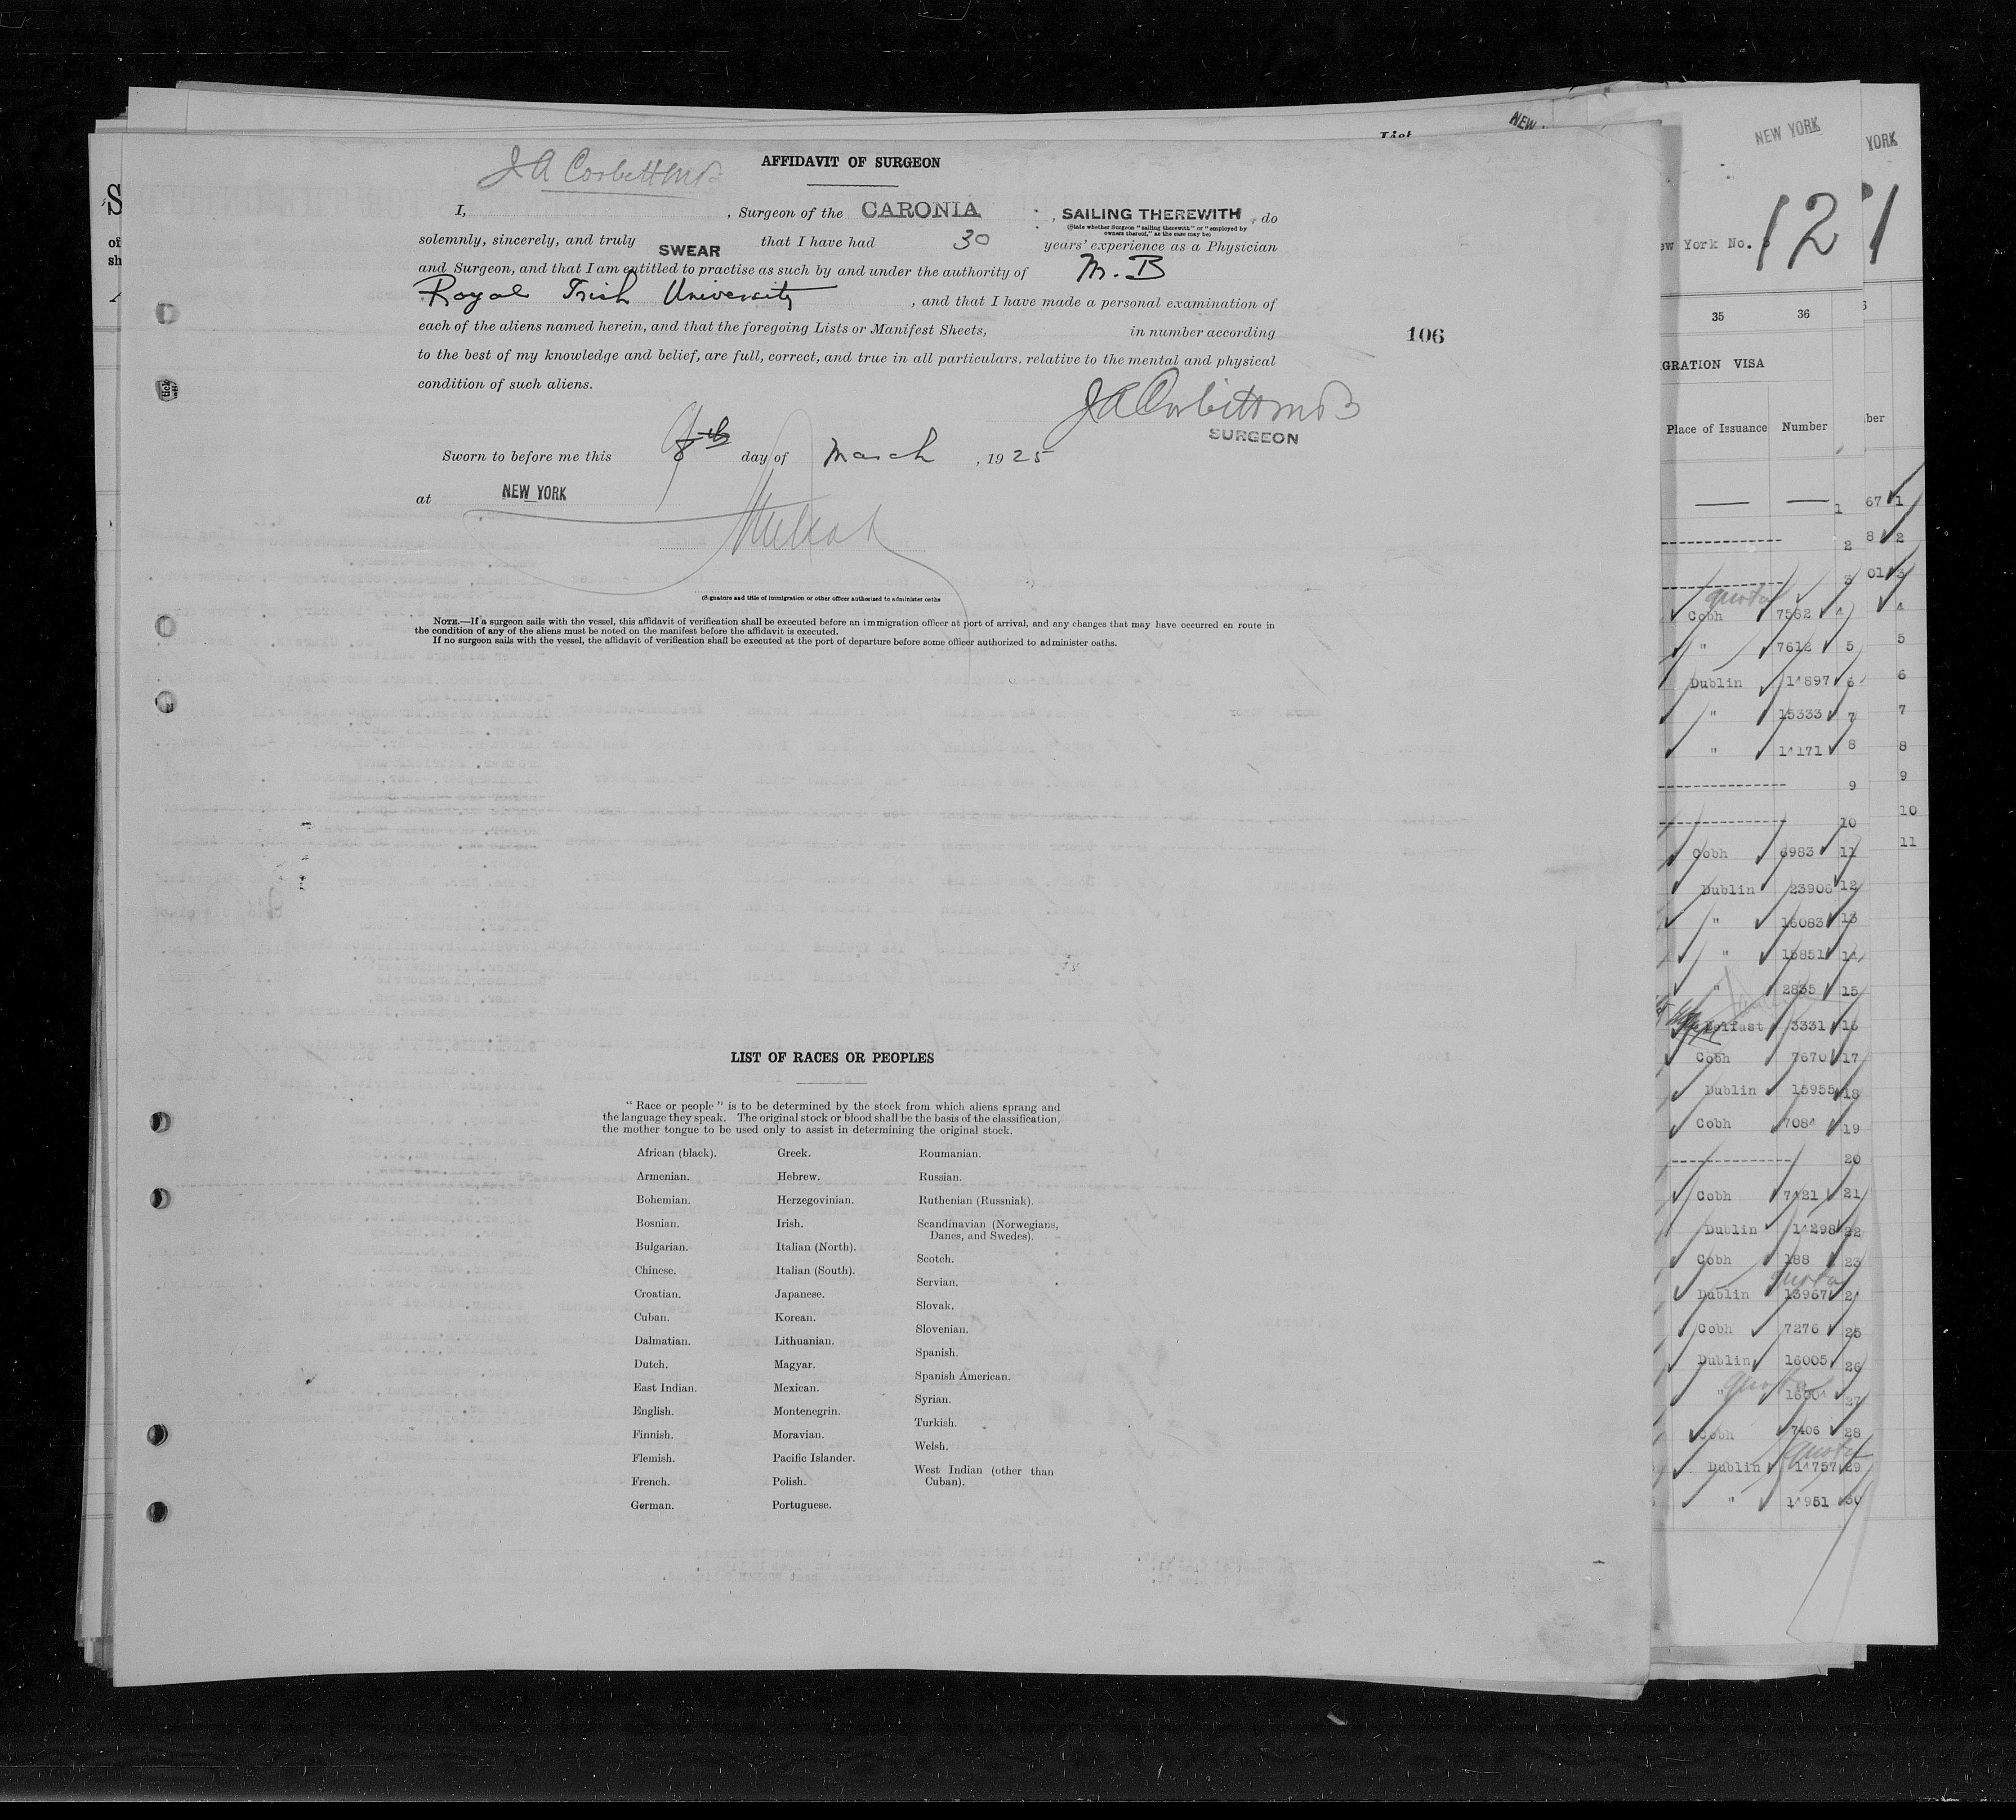 NEW
J A Corbett M B
AFFIDAVIT OF SURGEON
I, , Surgeon of the CARONIA , SAILING THEREWITH , do
(State whether Surgeon "sailing therewith" or "employed by
owners thereof," as the case may be)
solemnly, sincerely, and truly SWEAR that I have had 30 years' experience as a Physician
and Surgeon, and that I am entitled to practise as such by and under the authority of M. B
Royal Irish University , and that I have made a personal examination of
each of the aliens named herein, and that the foregoing Lists or Manifest Sheets, in number according
106
to the best of my knowledge and belief, are full, correct, and true in all particulars, relative to the mental and physical
condition of such aliens.
J A Corbett M B
SURGEON
Sworn to before me this day of March , 1925
at NEW YORK
(Signature and title of immigration or other officer authorized to administer oaths
NOTE.—If a surgeon sails with the vessel, this affidavit of verification shall be executed before an immigration officer at port of arrival, and any changes that may have occurred en route in
the condition of any of the aliens must be noted on the manifest before the affidavit is executed.
If no surgeon sails with the vessel, the affidavit of verification shall be executed at the port of departure before some officer authorized to administer oaths.
LIST OF RACES OR PEOPLES
"Race or people" is to be determined by the stock from which aliens sprang and
the language they speak. The original stock or blood shall be the basis of the classification,
the mother tongue to be used only to assist in determining the original stock.
African (black).
Armenian.
Bohemian.
Bosnian.
Bulgarian.
Chinese.
Croatian.
Cuban.
Dalmatian.
Dutch.
East Indian.
English.
Finnish.
Flemish.
French.
German.
Greek.
Hebrew.
Herzegovinian.
Irish.
Italian (North).
Italian (South).
Japanese.
Korean.
Lithuanian.
Magyar.
Mexican.
Montenegrin.
Moravian.
Pacific Islander.
Polish.
Portuguese.
Roumanian.
Russian.
Ruthenian (Russniak).
Scandinavian (Norwegians,
Danes, and Swedes).
Scotch.
Servian.
Slovak.
Slovenian.
Spanish.
Spanish American.
Syrian.
Turkish.
Welsh.
West Indian (other than
Cuban).
NEW YORK
YORK
ew York No. 12
1
35 36
GRATION VISA
Place of Issuance Number
ber
1
2
3
quota
Cobh 7582 4
" 7612 5
Dublin 14897 6
" 15333 7
" 14171 8
9
10
Cobh 6983 11
Dublin 23906 12
" 16083 13
" 15851 14
" 2835 15
Belfast 3331 16
Cobh 7670 17
Dublin 15955 18
Cobh 7084 19
20
Cobh 7421 21
Dublin 14298 22
Cobh 188 23
quota
Dublin 13967 24
Cobh 7276 25
Dublin 16005 26
quota
" 16004 27
Cobh 7406 28
quota
Dublin 14757 29
" 14951 30
67 1
8 2
01 3
4
5
6
7
8
9
10
11